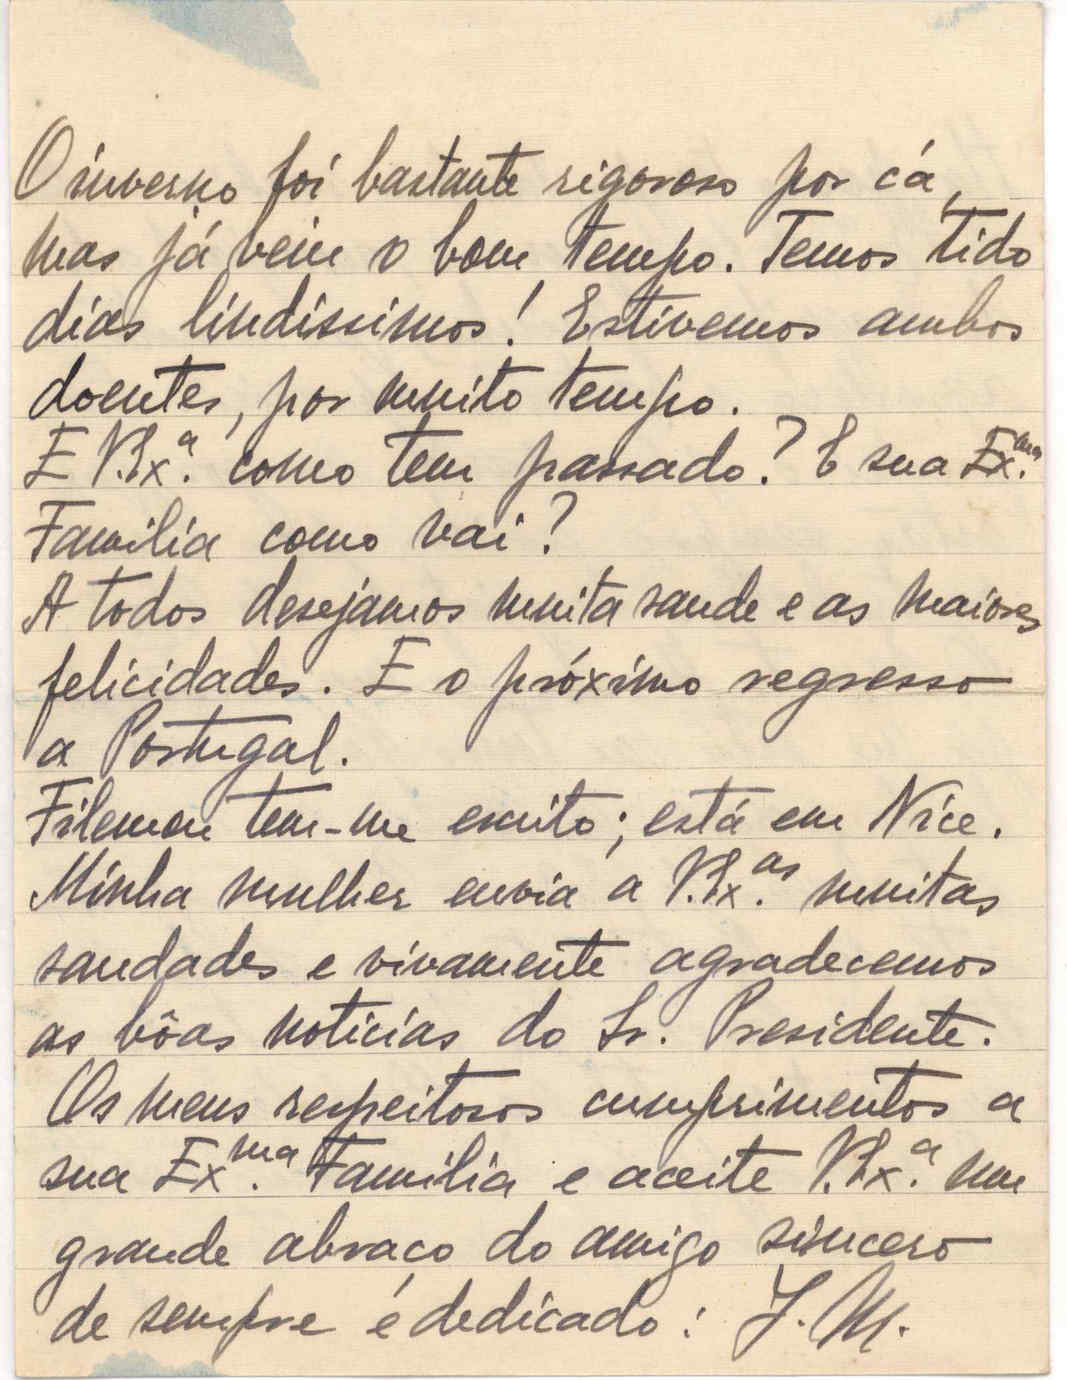 O inverno foi bastante rigoroso por cá,
mas já vem o bom tempo. Temos tido
dias lindissimos! Estivemos ambos
doentes, por muito tempo.
E V. Ex.ª como tem passado? E sua Ex.ma
Familia como vai?
A todos desejamos muita saude e as maiores
felicidades. E o próximo regresso
a Portugal.
Filemon tem-me escrito; está em Nice.
Minha mulher envia a V. Ex.as muitas
saudades e vivamente agradecemos
as bôas noticias do Sr. Presidente.
Os meus respeitosos cumprimentos a
sua Ex.ma Familia e aceite V. Ex.ª um
grande abraco do amigo sincero
de sempre é dedicado: J. M.